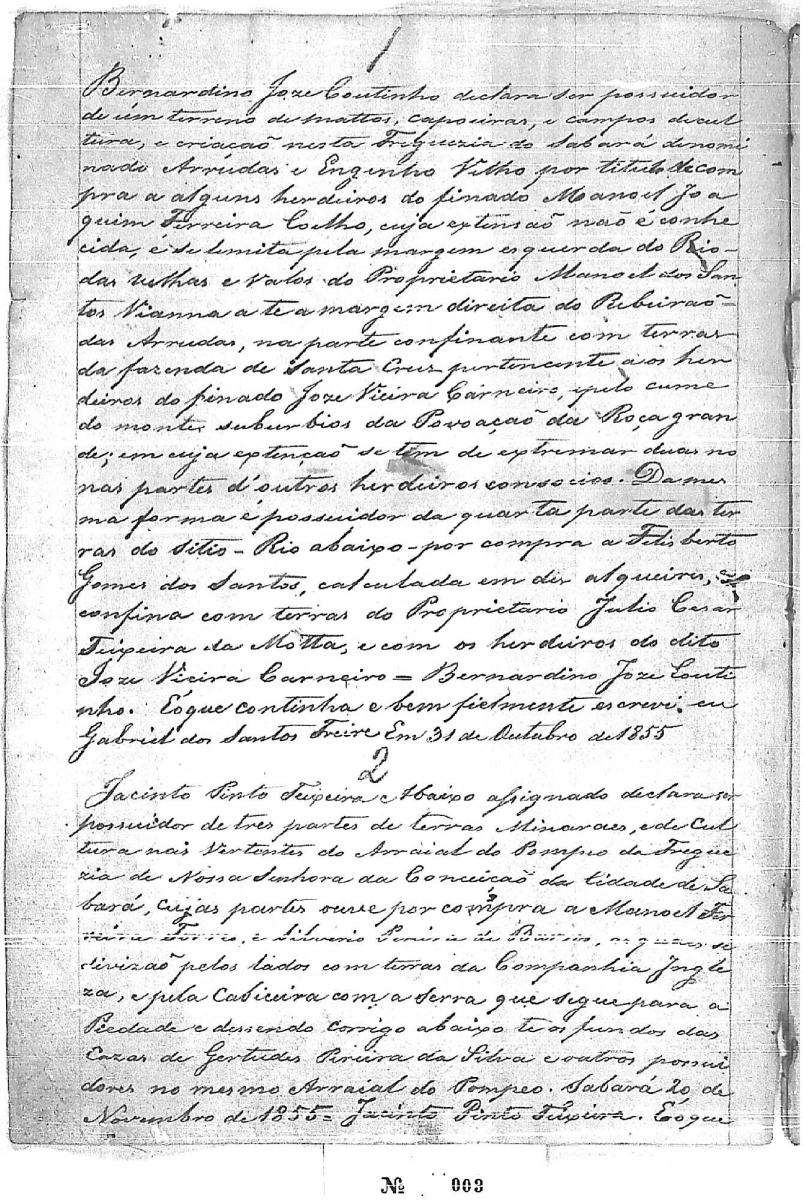 1
Bernardino Joze Coutinho declara ser possuidor
de um terreno de mattos, capoeiras, e campos de cul
tura, e criaçaõ nesta Freguezia do Sabará denomi
nado Arrúdas e Engenho Velho por titulo de com
pra a alguns herdeiros do finado Manoel Joa
quim Ferreira Coelho, cuja extensaõ naõ é conhe
cida, e se limita pela margem esquerda do Rio-
das velhas e valos do Proprietario Manoel dos San
tos Vianna a te a margem direita do Ribeiraõ=
das Arrudas, na parte confinante com terras
da fazenda de Santa Cruz pertencente a os her
deiros do finado Joze Vieira Carneiro, e pelo cume
do montes suburbios da Povoaçaõ da Roça gran
de; em cuja extençaõ se tem de extremar duas no
nas partes d'outros herdeiros consocios. Da mes
ma forma é possuidor da quarta parte das ter
ras do sitio - Rio abaixo - por compra a Felisberto
Gomes dos Santos, calculada em dez alqueires,
confina com terras do Proprietario Julio Cesar
Teixeira da Motta, e com os herdeiros do dito
Joze Vieira Carneiro = Bernardino Joze Couti
nho. Eóque continha e bem fielmente escrevi. eu
Gabriel dos Santos Freire Em 31 de Outubro de 1855
2
Jacinto Pinto Teixeira e Abaixo assignado declara ser
possuidor de tres partes de terras Minaraes, e de Cul
tura nas Vertentes do Arraial do Pompeo da Fregue
zia de Nossa Senhora da Conceiçaõ da Cidade de Sa
bará, cujas partes ouve por compra a Manoel Fer
reira Torres, e Silverio Pereira de Barros, as quaes se
divizaõ pelos lados com terras da Companhia Ingle
za, e pela Cabiceira com a serra que segue para a
Piedade e dessendo corrigo abaixo te os fundos das
Cazas de Gertudes Pireira da Silva e outros possui
dores no mesmo Arraial do Pompeo. Sabará 20 de
Novembro de 1855= Jacinto Pinto Teixeira. Eóque
Nº 003